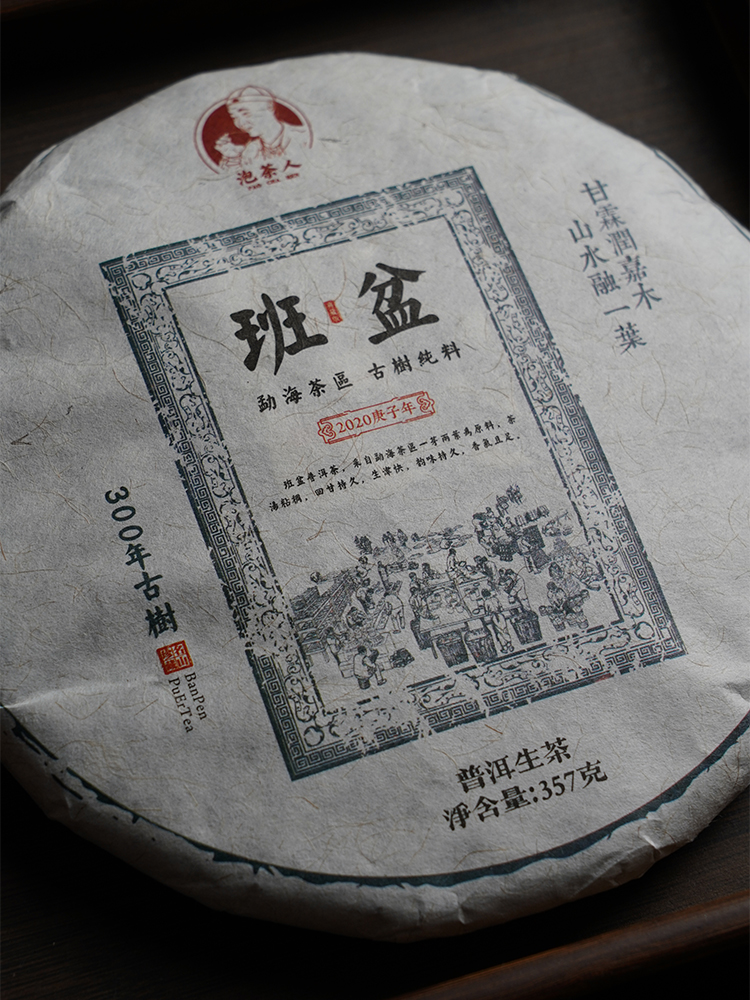 泡茶人
甘霖潤嘉木
山水融一葉
班盆
勐海茶區 古樹純料
2020庚子年
班盆普洱茶，采自勐海茶區一芽兩葉為原料，茶
湯粘稠，回甘持久，生津快，韵味持久，香氣且足。
300年古樹
BanPen
PuErTea
普洱生茶
淨含量:357克